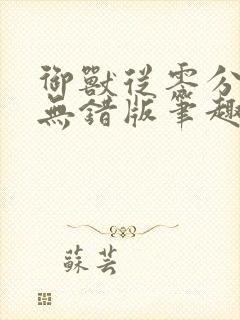 御獸從零分
無錯版筆趣
蘇芸